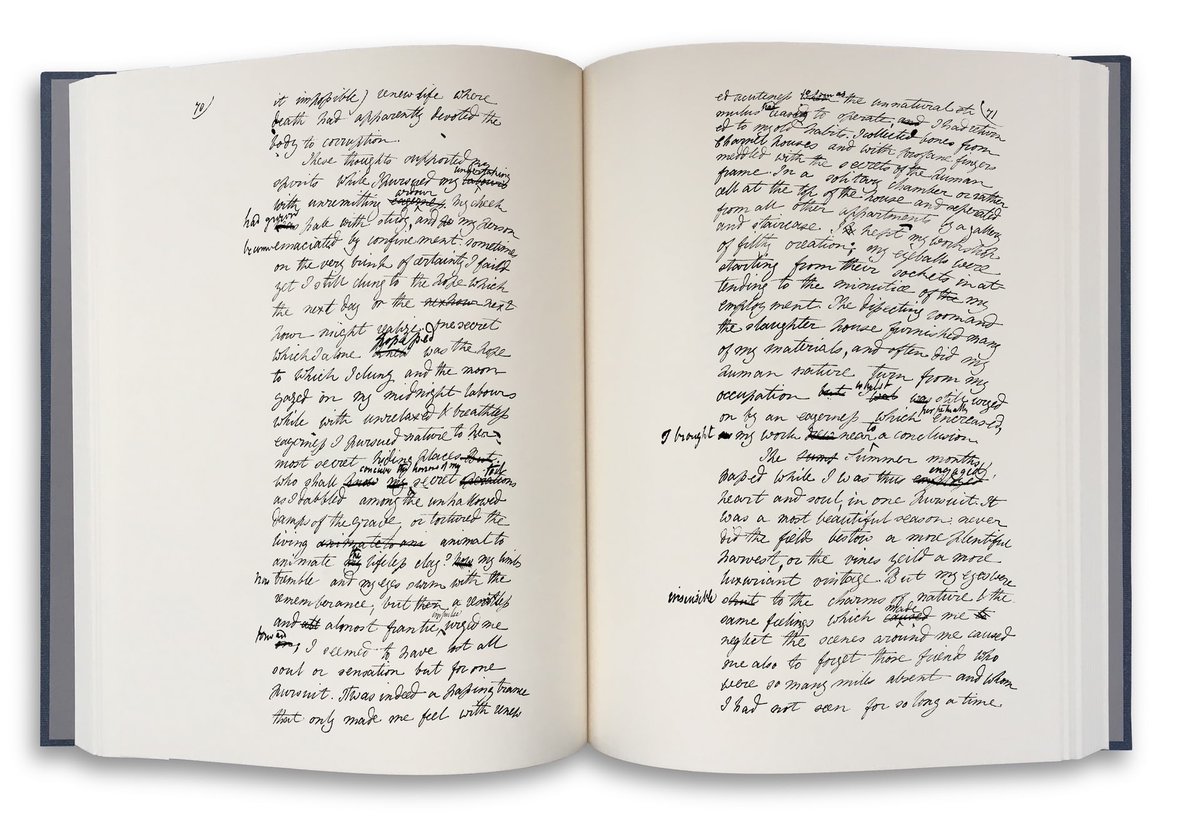 70)
it impossible) renew life where
death had apparently devoted the
body to corruption.
These thoughts supported my
undertaking
spirits while I pursued my labours
ardour
with unremitting eagerness. My cheek
had grown
pale with study, and my person
become emaciated by confinement, sometimes
on the very brink of certainty I faild
yet I still clung to the hope which
the next day or the next hour next
hour might realize. One secret
possessed
which I alone knew was the hope
to which I clung and the moon
gazed on my midnight labours
while with unrelaxed & breathless
eagerness I pursued nature to her
most secret hiding places. But
concieve the horrors of my
who shall know my secret toil
as I dabbled among the unhallowed
damps of the grave, or tortured the
living animate to ani animal to
the
animate my lifeless clay? how my limbs
Now tremble and my eyes swim with the
rememberance, but then a resistless
impulse
and all almost frantic urged me
forward
I seemed to have lost all
soul or sensation but for one
pursuit. It was indeed a passing trance
that only made me feel with renew
(71
ed acuteness as soon as the unnatural sti
mulus ceasing to operate, and I had return
ed to my old habits. I collected bones from
Charnel houses and with profane fingers
meddled with the secrets of the human
frame. In a solitary chamber or rather
cell at the top of the house and seperated
from all other appartments by a gallery
and staircase. I kept my workshop
of filthy creation; my eyeballs were
starting from their sockets in at
tending to the minutiæ of the my
employment. The dissecting room and
the slaughter house furnished many
of my materials, and often did my
human nature turn from my
occupation but whilst was still urged
perpetually
on by an eagerness which encreased,
I brought my work near to a conclusion
The sums summer months
engaged,
passed while I was thus
heart and soul, in one pursuit. It
was a most beautiful season; never
did the fields bestow a more plentiful
harvest, or the vines yeild a more
luxuriant vintage. But my eyes were
insensible shut to the charms of nature & the
made
same feelings which caused me to
neglect the scenes around me caused
me also to forget those friends who
were so many miles absent and whom
I had not seen for so long a time